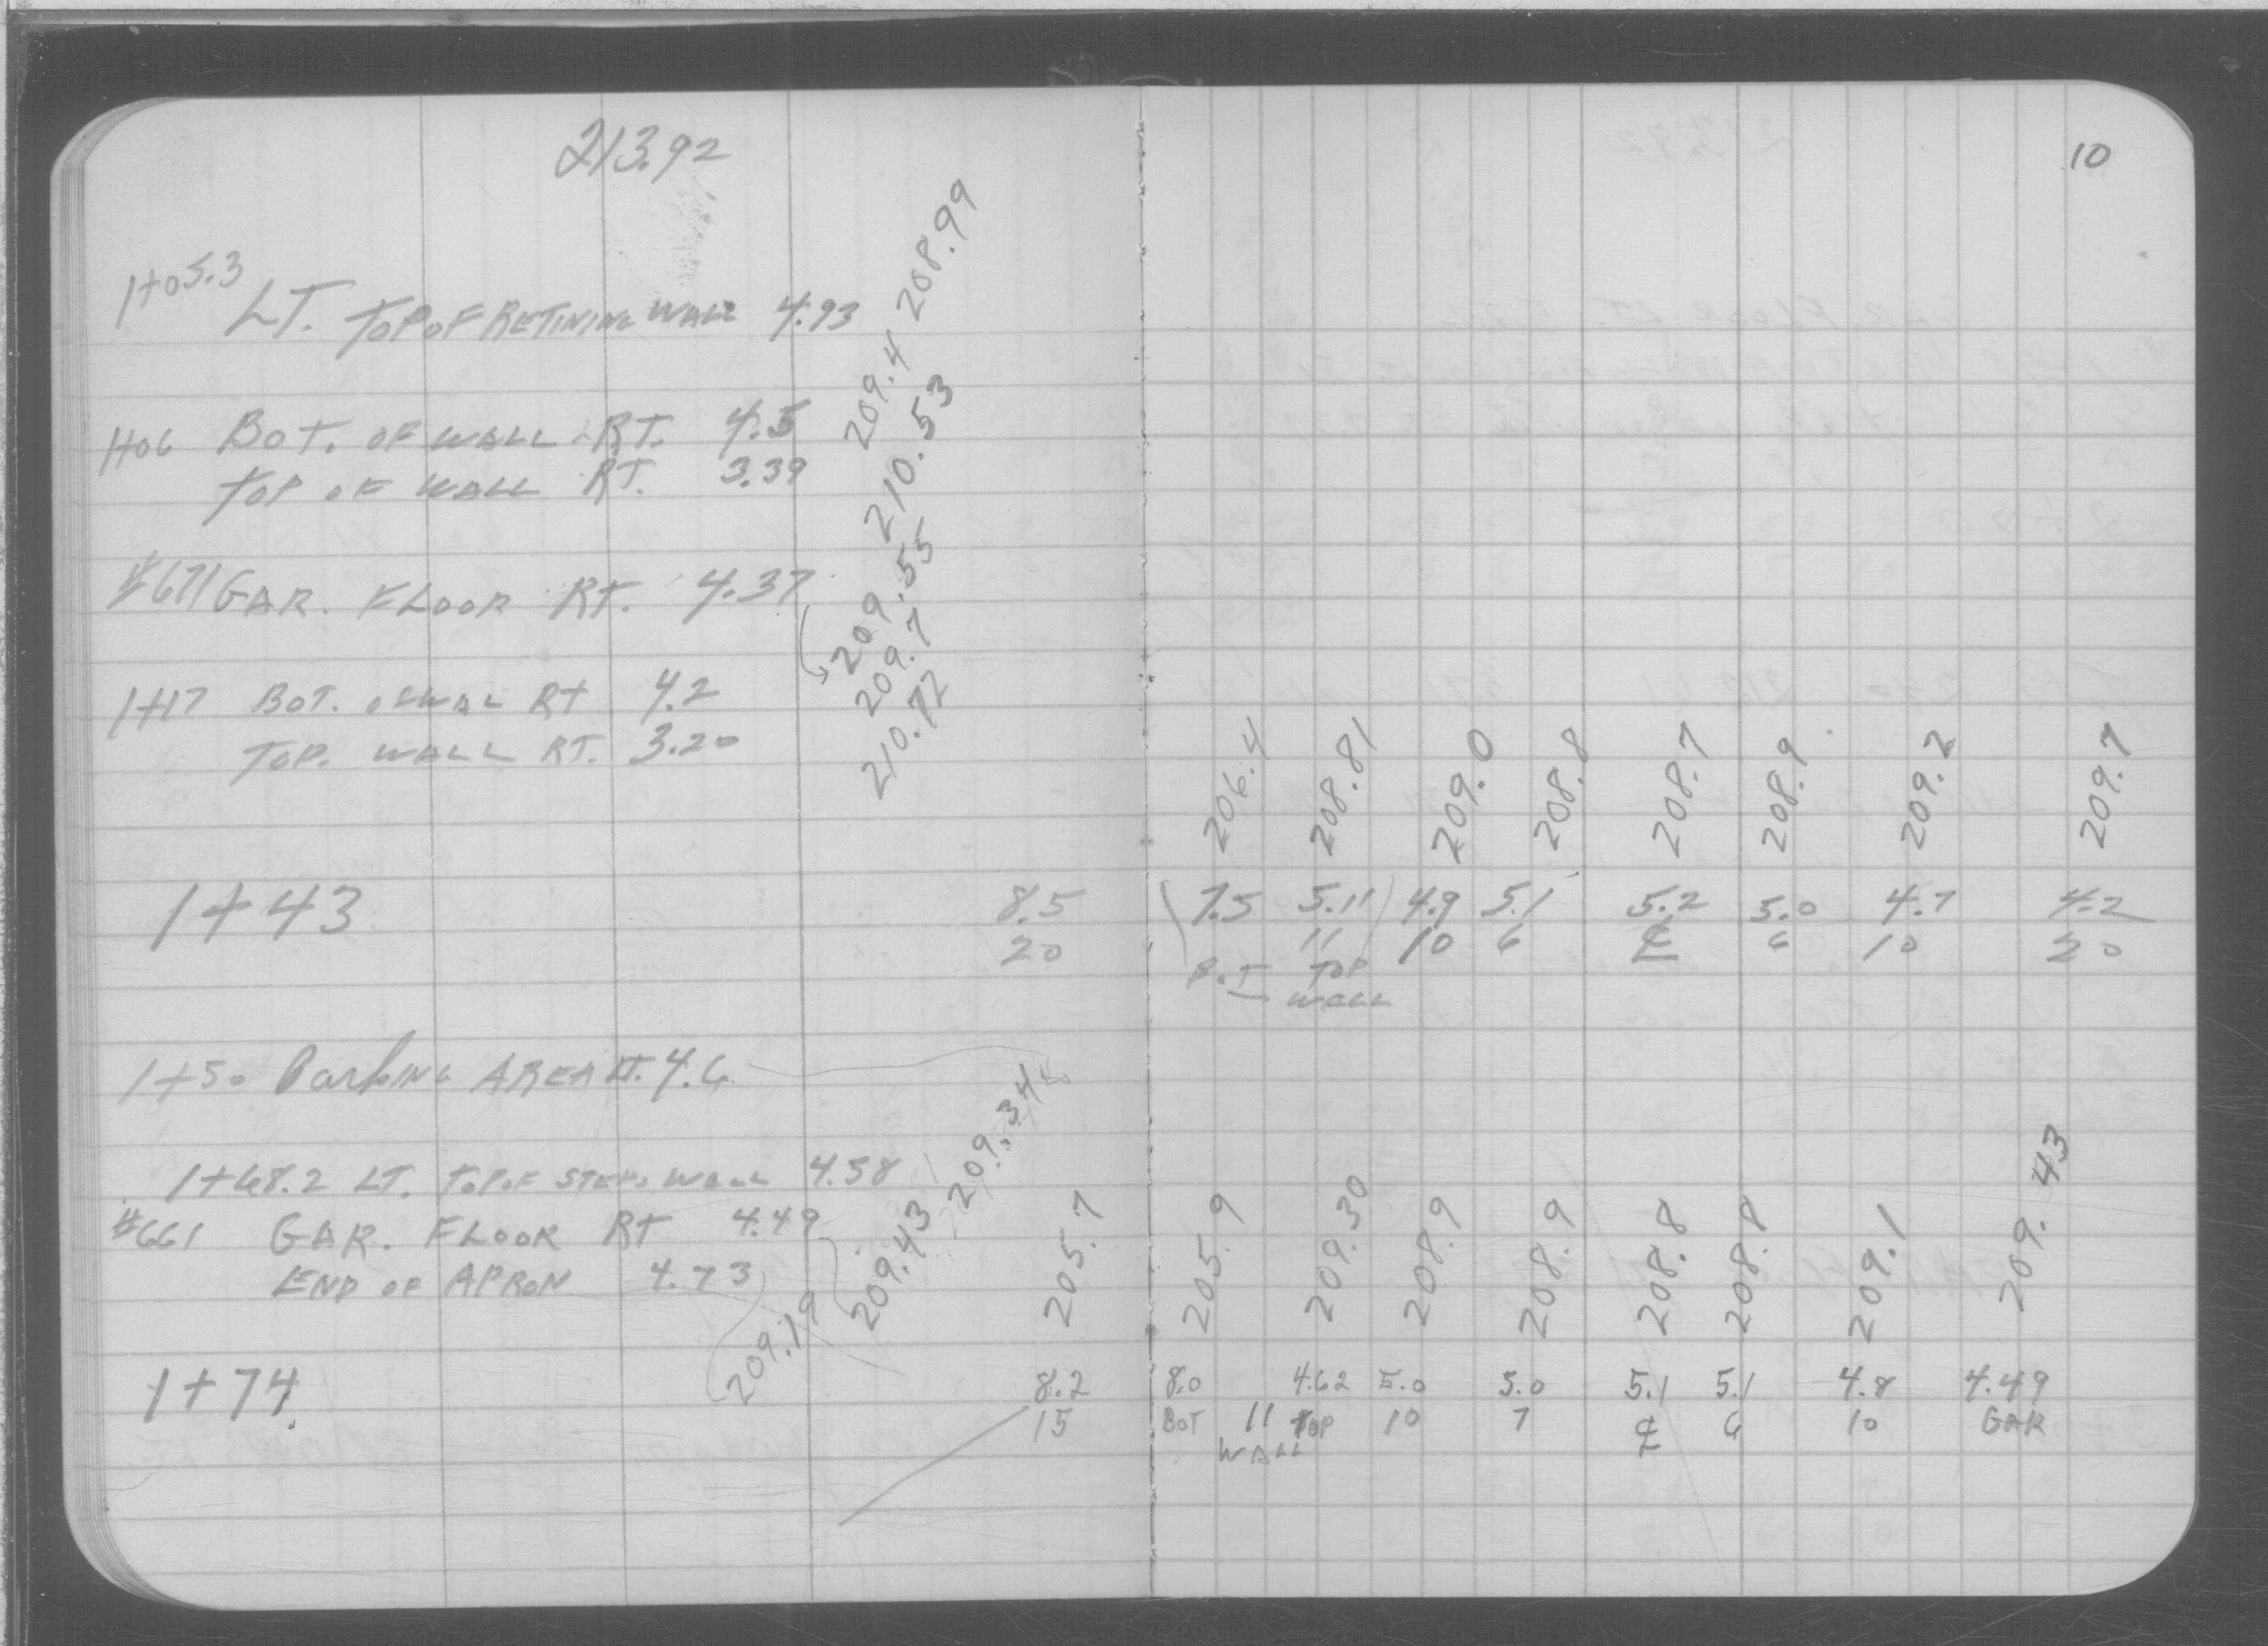 213.92
10
1+05.3 LT. TOP OF RETINING WALL 4.93 208.99
1+06 BOT. OF WALL RT. 4.5 209.4
TOP OF WALL RT. 3.39 210.53
#671 GAR. FLOOR RT. 4.37 209.55
1+17 BOT. OF WAL RT 4.2 209.7
TOP. WALL RT. 3.20 210.72
206.4 208.81 209.0 208.8 208.7 208.9 209.2 209.7
1+43 8.5 (7.5 5.11) 4.9 5.1 5.2 5.0 4.7 4.2
20 11 10 6 ℄ 6 10 20
BOT TOP
WALL
1+50 Parking AREA LT. 4.6
1+68.2 LT. TOP OF STEP. WALL 4.58 209.34
#661 GAR. FLOOR RT 4.49 209.43
END OF APRON 4.73 209.19
205.7 205.9 209.30 208.9 208.9 208.8 208.8 209.1 209.43
1+74 8.2 8.0 4.62 5.0 5.0 5.1 5.1 4.8 4.49
15 BOT 11 TOP 10 7 ℄ 6 10 GAR
WALL